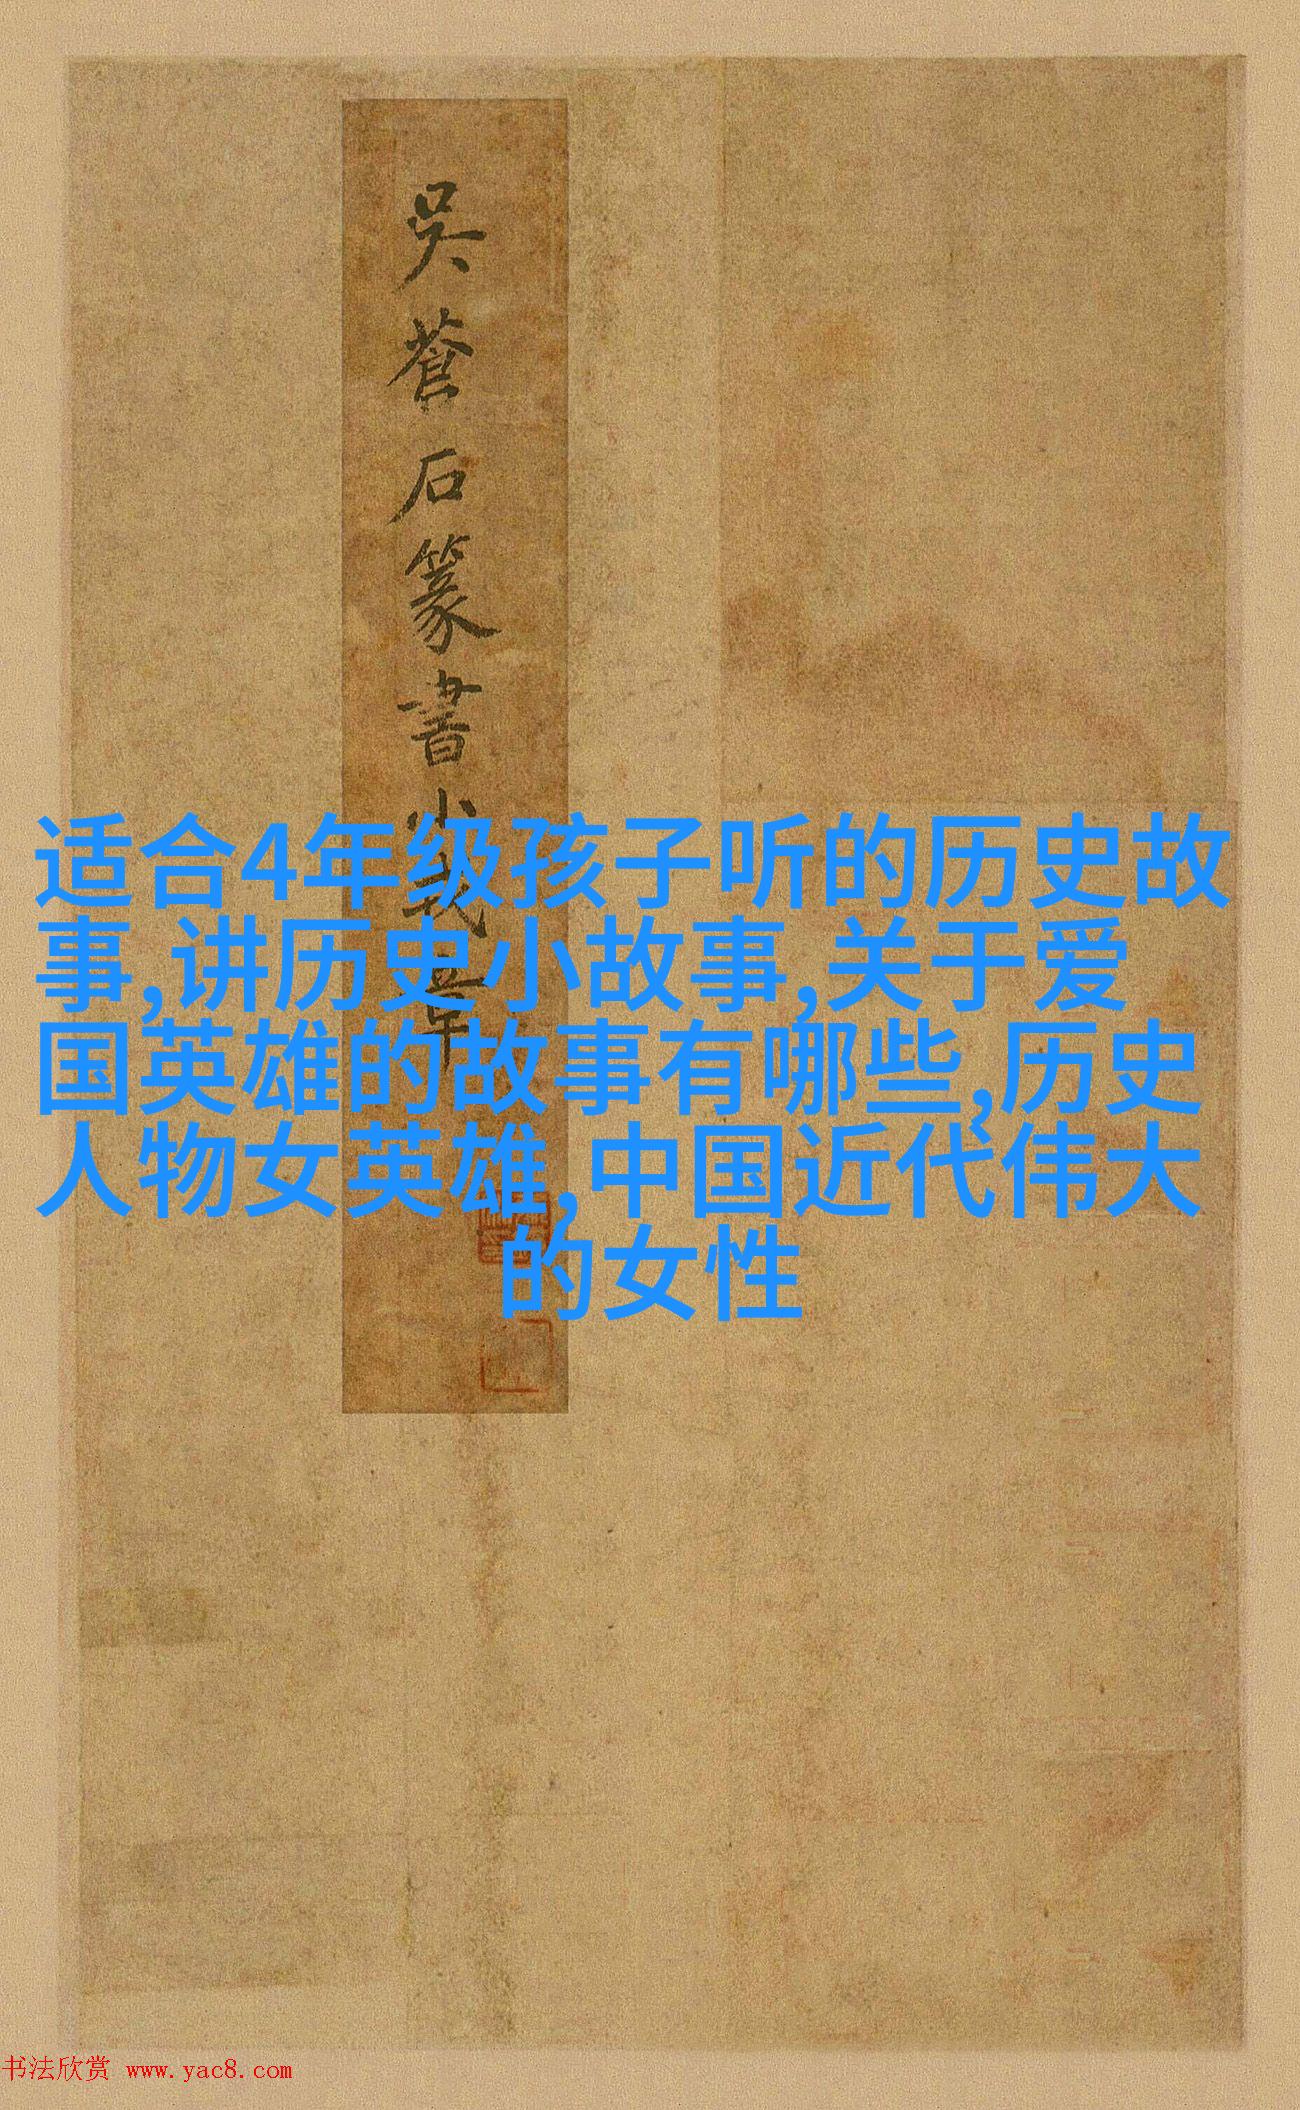 吳蒼石篆書小戏章
适合4年级孩子听的历史故
事,讲历史小故事,关于爱
国英雄的故事有哪些,历史
人物女英雄,中国近代伟大
的女性
书法欣赏 www.yac8.com